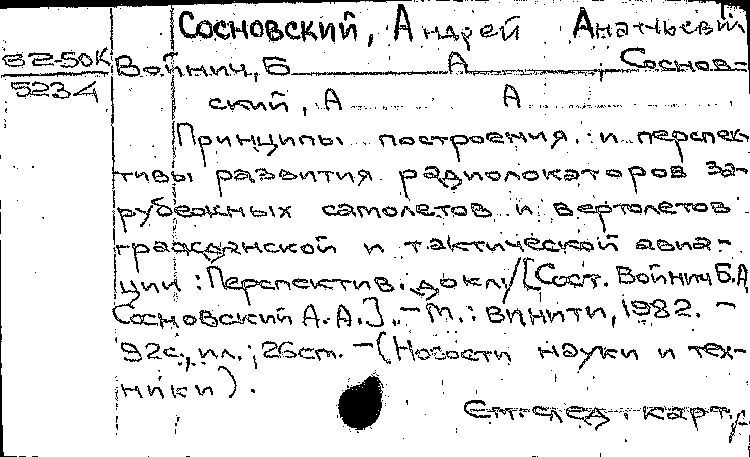 Сосновский, Андрей Анатьевич
82-50К Войнич, Б А , Соснов-
5234 ский, А А
Принципы построения и перспек-
тивы развития радиолокаторов за-
рубежных самолетов и вертолетов
гражданской и тактической авиа-
ции : Перспектив. докл./[Сост. Войнич Б.А,
Сосновский А.А.]. — М. : ВИНИТИ, 1982. —
92с., ил. ; 26см. — (Новости науки и тех-
ники).
См. след. карт.